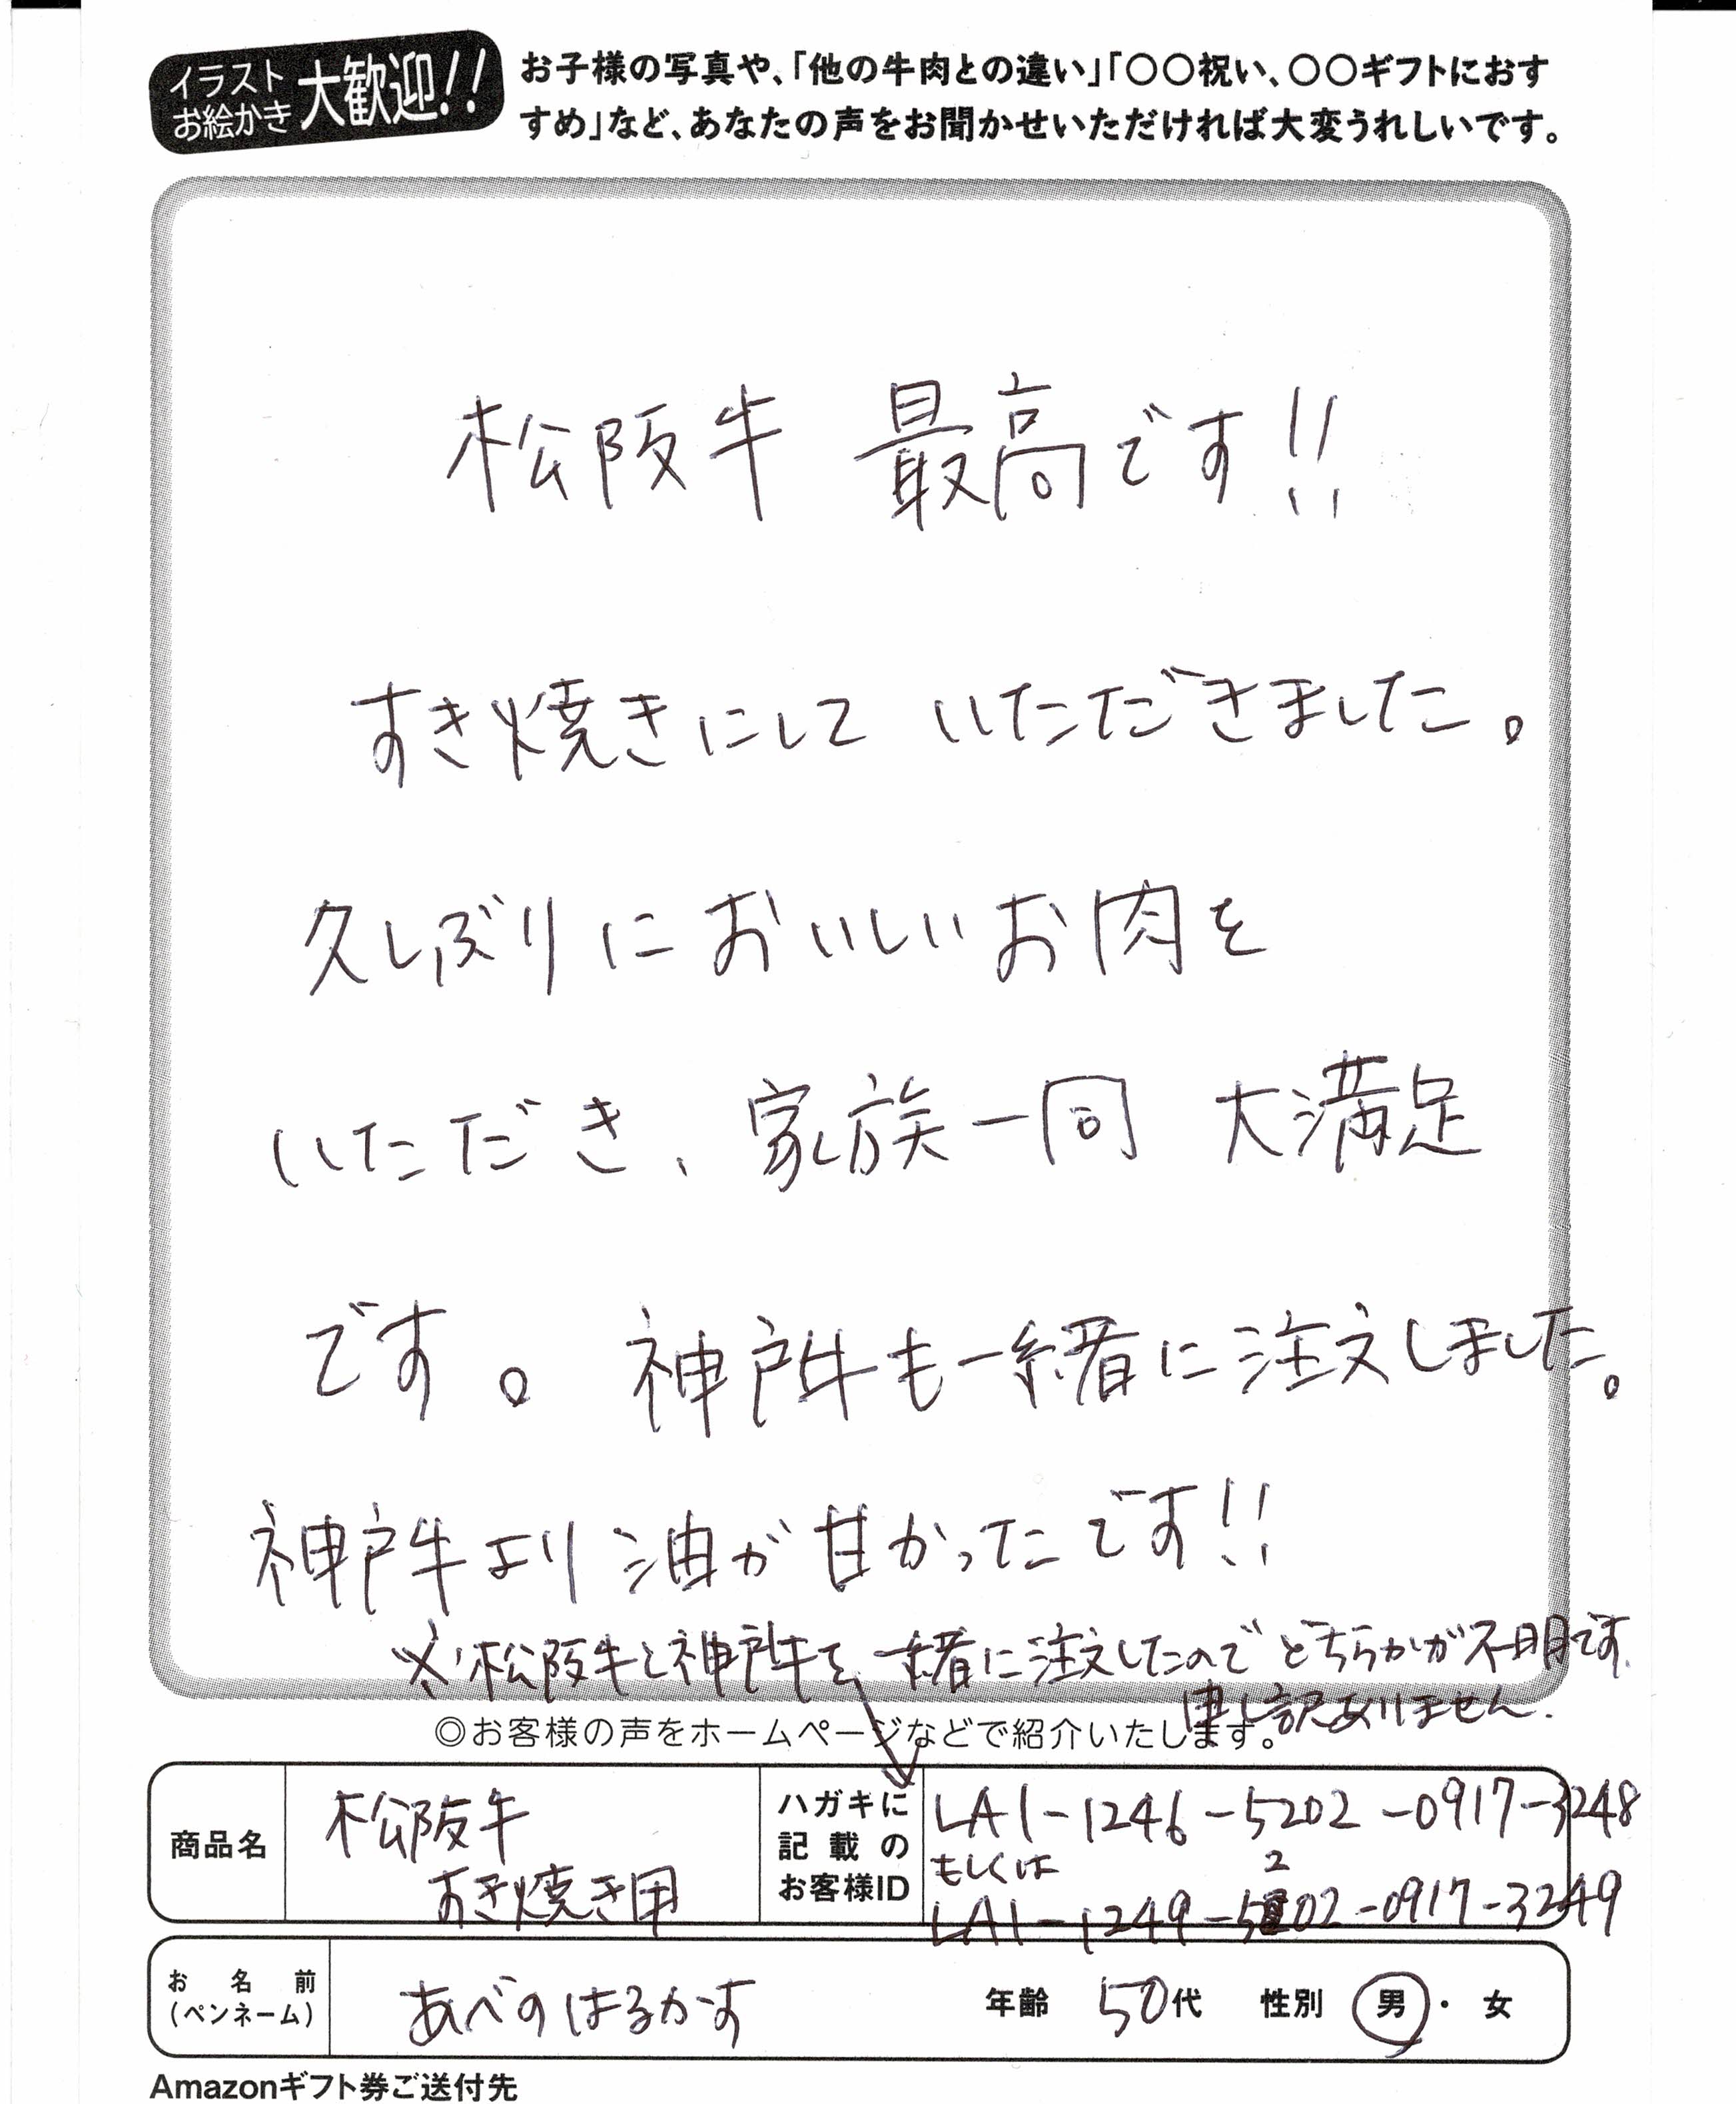 イラスト
お絵かき
大歓迎!!
お子様の写真や、「他の牛肉との違い」「○○祝い、○○ギフトにおす
すめ」など、あなたの声をお聞かせいただければ大変うれしいです。
松阪牛 最高です!!
すき焼きにして いただきました。
久しぶりにおいしいお肉を
いただき、家族一同 大満足
です。神戸牛も一緒に注文しました。
神戸牛より油が甘かったです!!
※松阪牛と神戸牛を一緒に注文したのでどちらかが不明です。
申し訳ありません.
◎お客様の声をホームページなどで紹介いたします。
商品名
松阪牛
すき焼き用
ハガキに
記載の
お客様ID
LA1-1246-5202-0917-3248
もしくは
2
LA1-1249-5202-0917-3249
お名前
(ペンネーム)
あべのはるかす
年齢 50代 性別 男・女
Amazonギフト券ご送付先